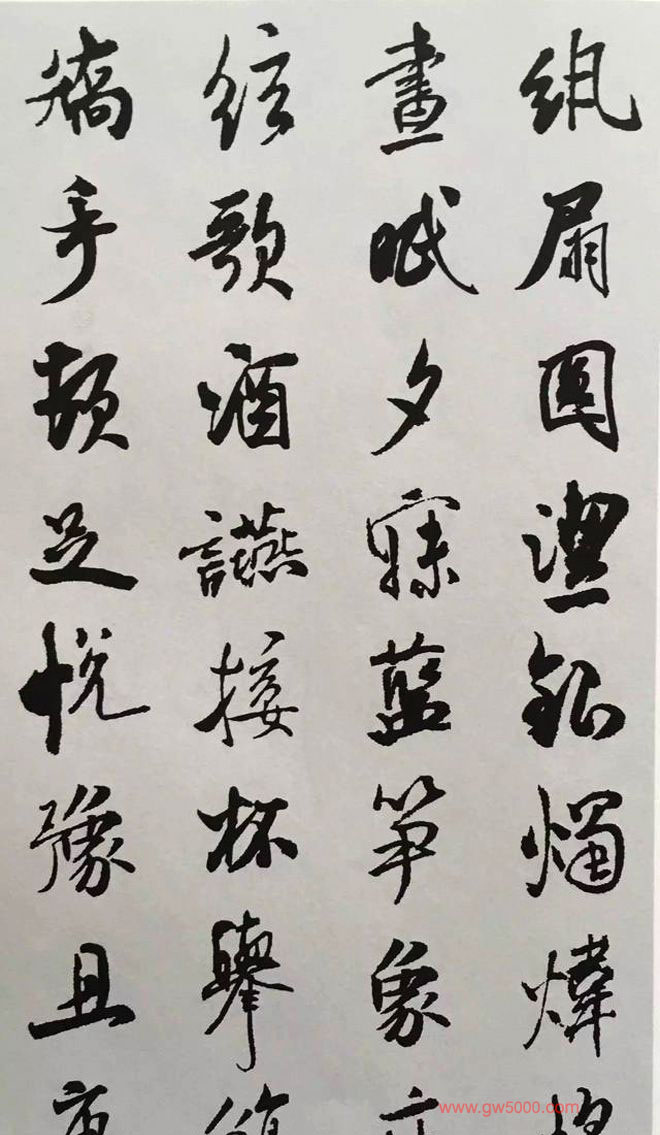 紈扇圓潔銀燭煒
晝眠夕寐藍笋象
絃歌酒讌接杯舉
矯手頓足悅豫且
www.gw5000.com